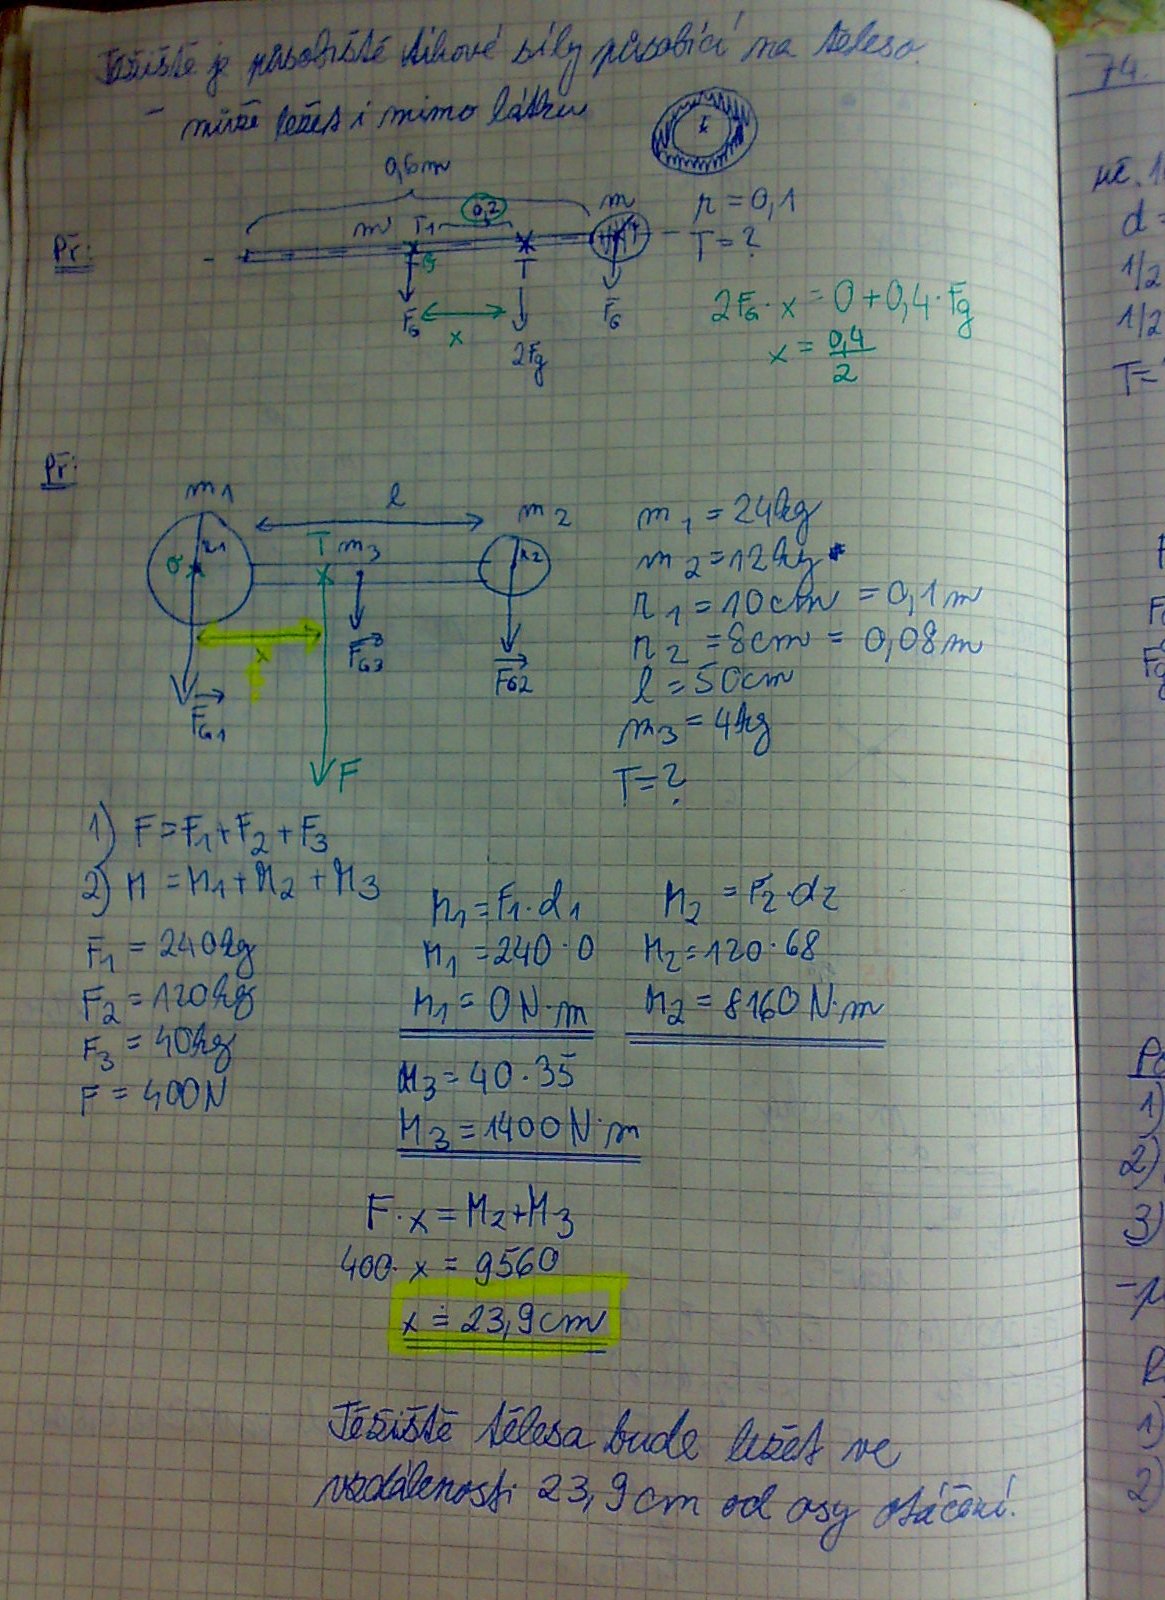 Těžiště je působiště tíhové síly působící na těleso.
- může ležet i mimo látku
0,6m
Př:
m T1 0,2 m
r = 0,1
T = ?
FG T FG
x
2Fg
2FG · x = 0 + 0,4 · Fg
x = 0,4/2
Př:
m1 l m2
r1 T m3 r2
O
x
FG1 FG3 FG2
F
m1 = 24kg
m2 = 12kg
r1 = 10cm = 0,1m
r2 = 8cm = 0,08m
l = 50cm
m3 = 4kg
T = ?
1) F = F1 + F2 + F3
2) M = M1 + M2 + M3
F1 = 240kg
F2 = 120kg
F3 = 40kg
F = 400N
M1 = F1 · d1
M1 = 240 · 0
M1 = 0 N·m
M2 = F2 · d2
M2 = 120 · 68
M2 = 8160 N·m
M3 = 40 · 35
M3 = 1400 N·m
F · x = M2 + M3
400 · x = 9560
x ≐ 23,9cm
Těžiště tělesa bude ležet ve
vzdálenosti 23,9cm od osy otáčení.
74.
d =
1/2
1/2
T =
1)
2)
3)
1)
2)